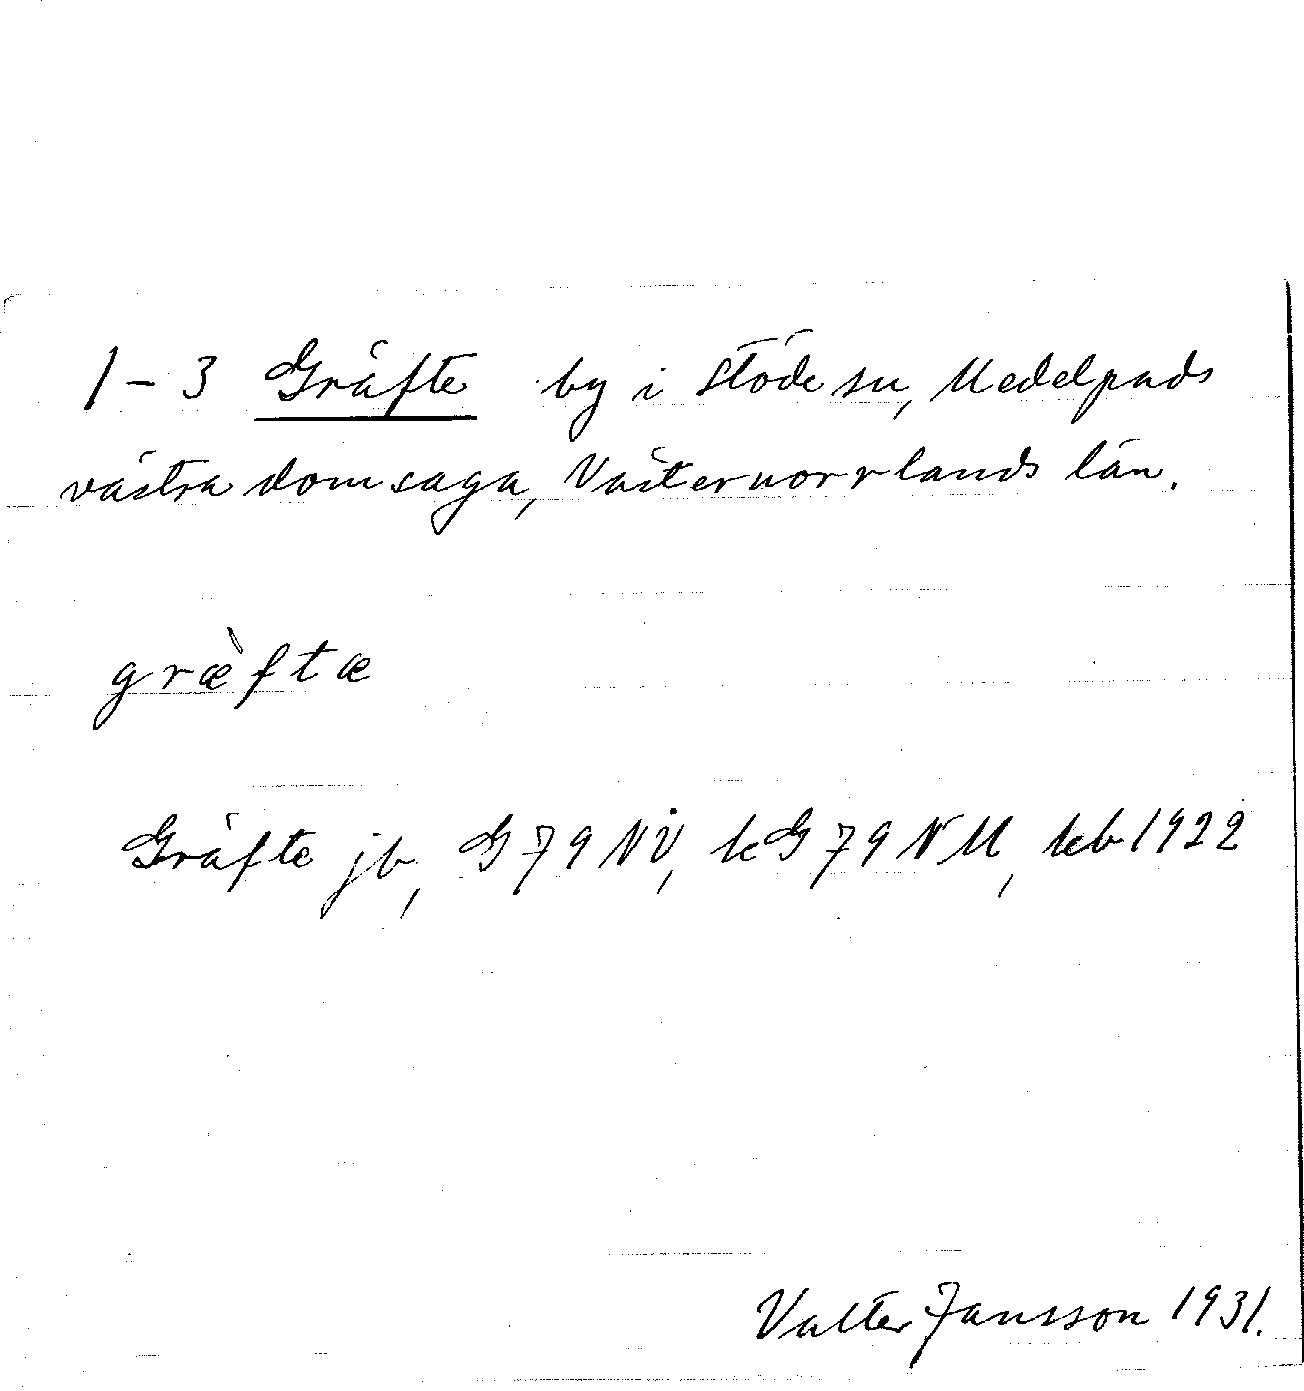 1-3 Gräfte by i Stöde sn, Medelpads
västra domsaga, Västernorrlands län.
græ̀ftæ
Gräfte jb, G 79 NV, kG 79 NM, kb 1922
Valter Jansson 1931.